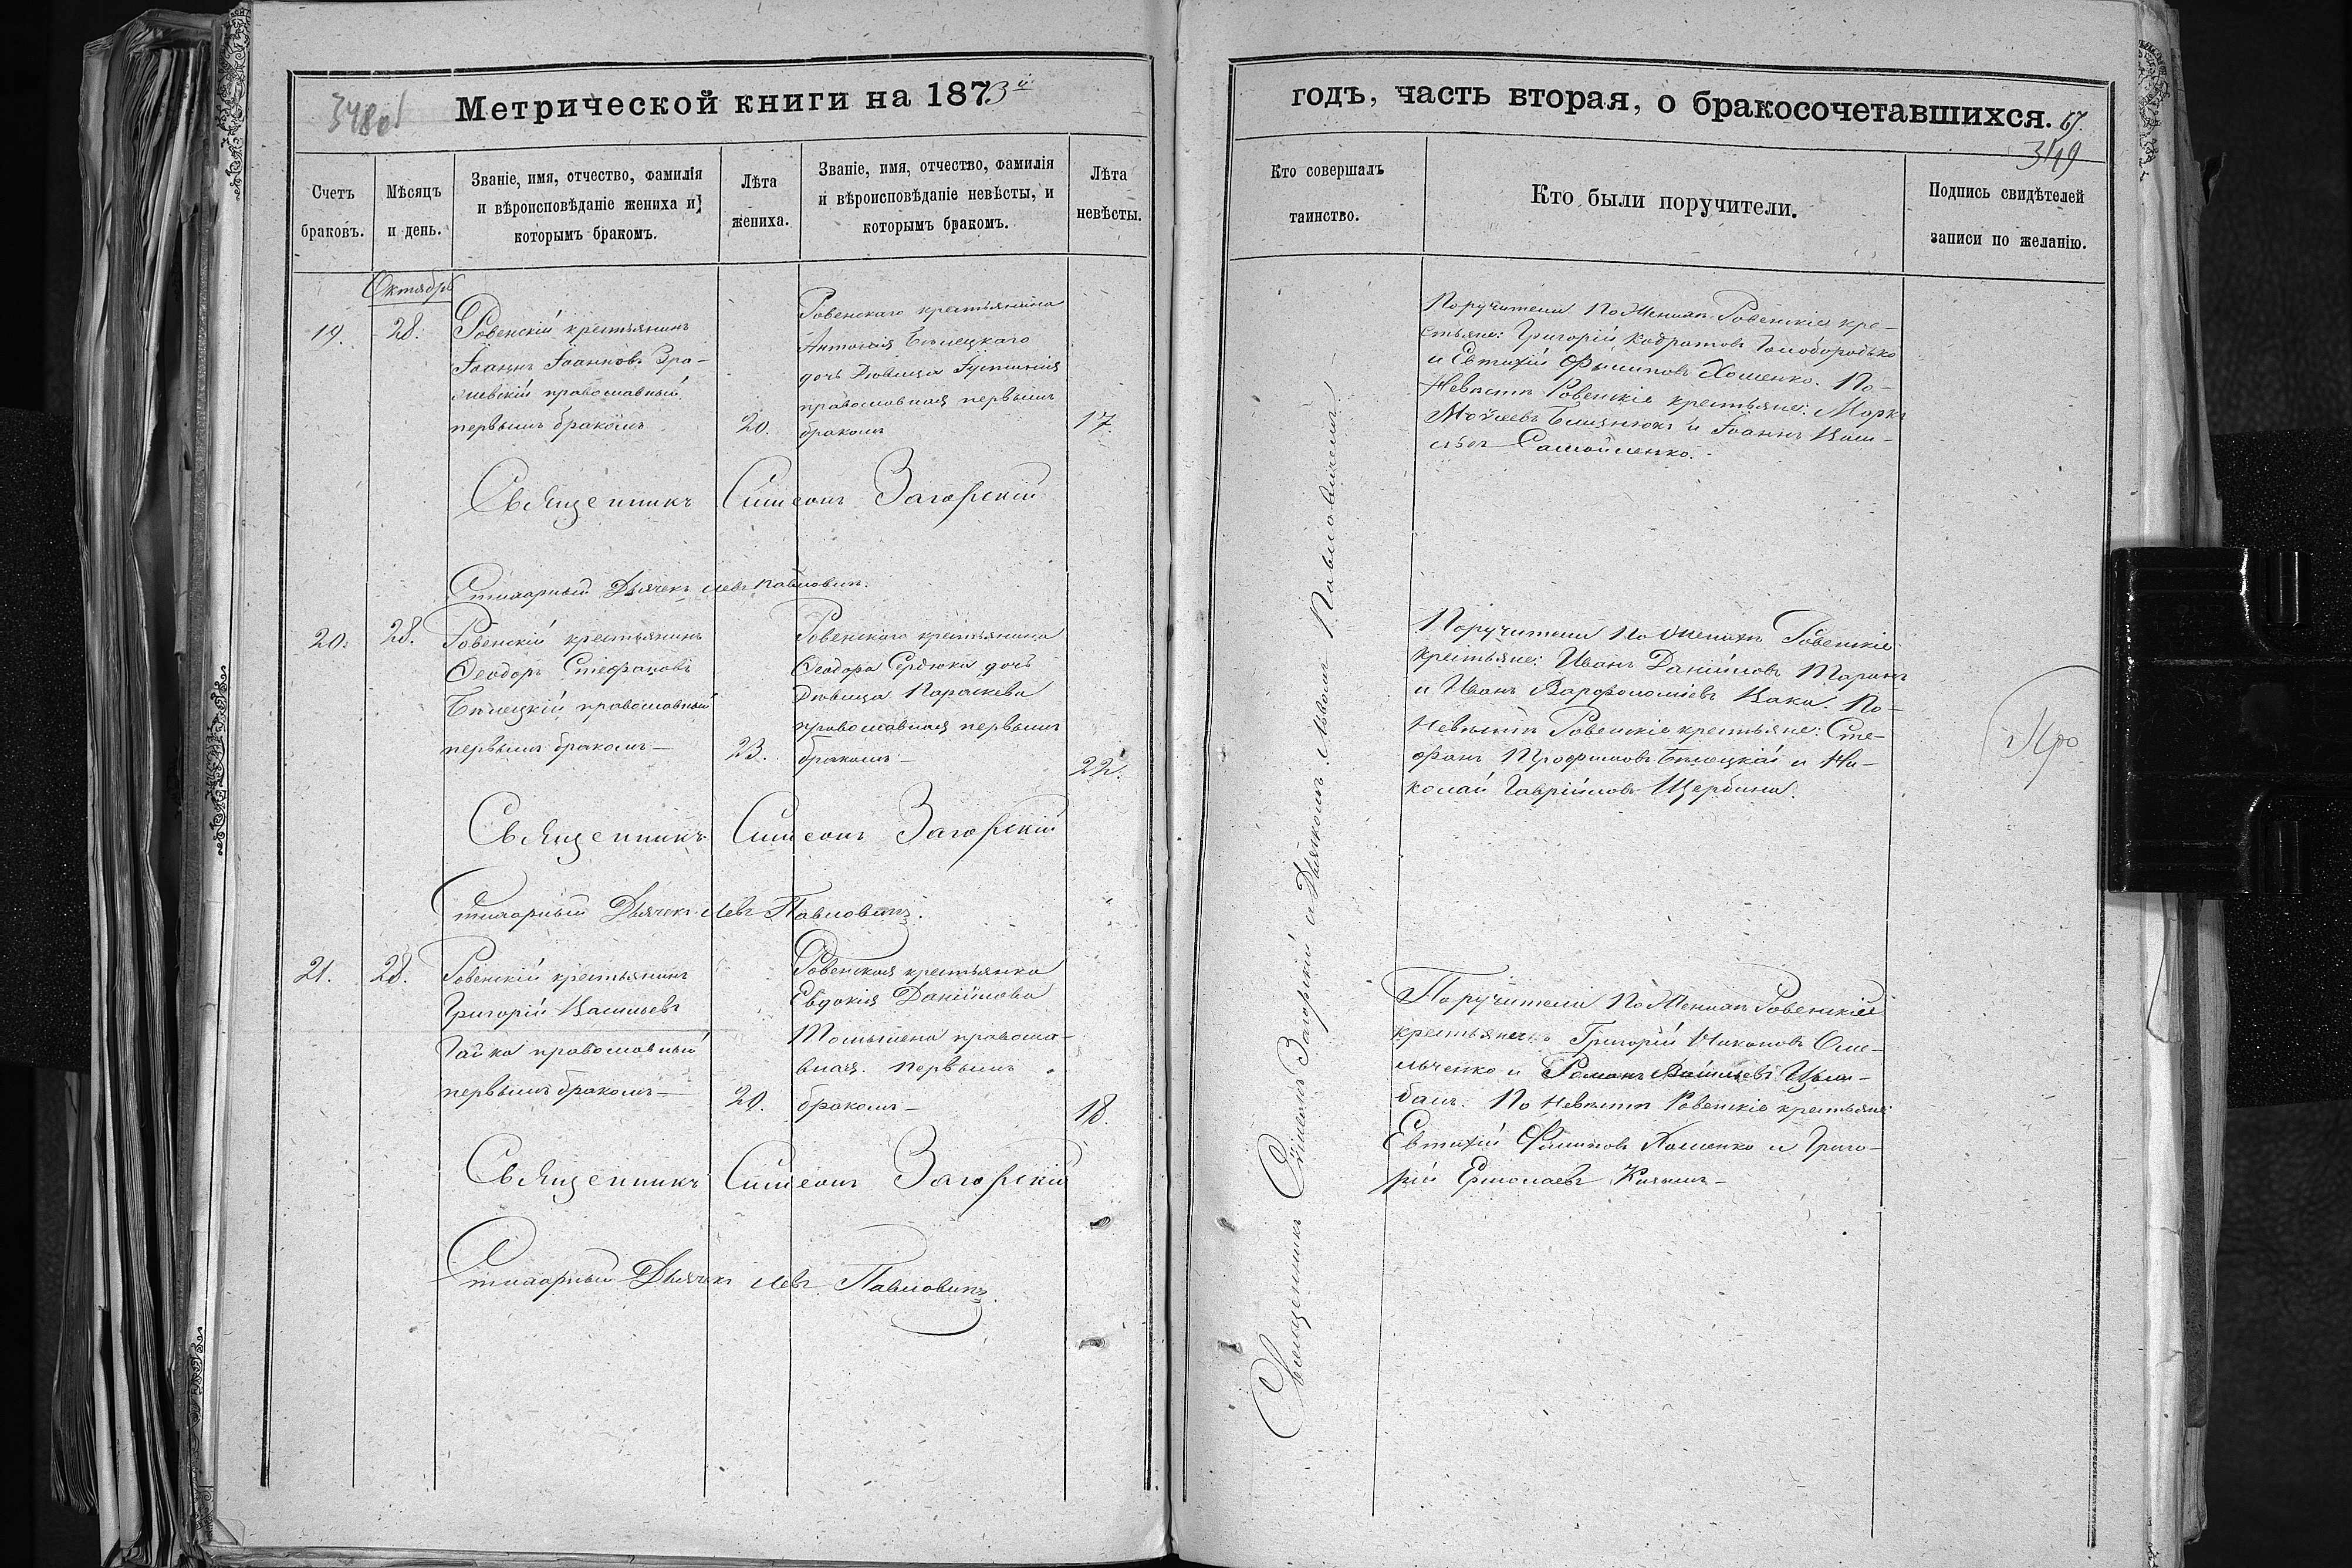 348об
Метрической книги на 1873й
Счетъ браковъ.
Мѣсяцъ и день.
Званіе, имя, отчество, фамилія и вѣроисповѣданіе жениха и которымъ бракомъ.
Лѣта жениха.
Званіе, имя, отчество, фамилія и вѣроисповѣданіе невѣсты, и которымъ бракомъ.
Лѣта невѣсты.
Октябрь
19.
28.
Ровенскій крестьянинъ
Іоаннъ Іоанновъ
православный
первымъ бракомъ
20.
Ровенскаго крестьянина
Антонія Бѣлецкаго
дочь Дѣвица Іустинія
православная первымъ
бракомъ
17.
Священникъ Симеонъ Загорскій
Стихарный Дьячекъ Левъ Павловичъ.
20.
28.
Ровенскій крестьянинъ
Ѳеодоръ Стефановъ
Бѣлецкій православный
первымъ бракомъ
23.
Ровенскаго крестьянина
Ѳеодора Сердюка дочь
Дѣвица Параскева
православная первымъ
бракомъ
22.
Священникъ Симеонъ Загорскій
Стихарный Дьячекъ Левъ Павловичъ.
21.
28.
Ровенскій крестьянинъ
Григорій Васильевъ
Гайка православный
первымъ бракомъ
20.
Ровенская крестьянка
Евдокія Даніилова
правосла-
вная первымъ
бракомъ
18.
Священникъ Симеонъ Загорскій
Стихарный Дьячекъ Левъ Павловичъ.
годъ, часть вторая, о бракосочетавшихся.
67.
349
Кто совершалъ таинство.
Кто были поручители.
Подпись свидѣтелей записи по желанію.
Священникъ Симеонъ Загорскій съ Дьячкомъ Львомъ Павловичемъ.
Поручители По Женихѣ Ровенскіе кре-
стьяне: Григорій Кодратовъ Голобородько
и Евтихій Филиповъ Хоменко. По
Невѣстѣ Ровенскіе крестьяне: Марко
Мойсеевъ и Іоаннъ Васи-
льевъ Самойленко.
Поручители По Женихѣ Ровенскіе
крестьяне: Иванъ Даніиловъ Таранъ
и Иванъ Варфоломіевъ Кака. По
Невѣстѣ Ровенскіе крестьяне: Сте-
фанъ Трофимовъ Бѣлецкій и Ни-
колай Гавріиловъ Щербина.
Поручители По Женихѣ Ровенскіе
крестьяне: Григорій Никоновъ Оме-
льченко и Романъ Васильевъ Цым-
балъ. По Невѣстѣ Ровенскіе крестьяне
Евтихій Филиповъ Хоменко и Григо-
рій Ермолаевъ